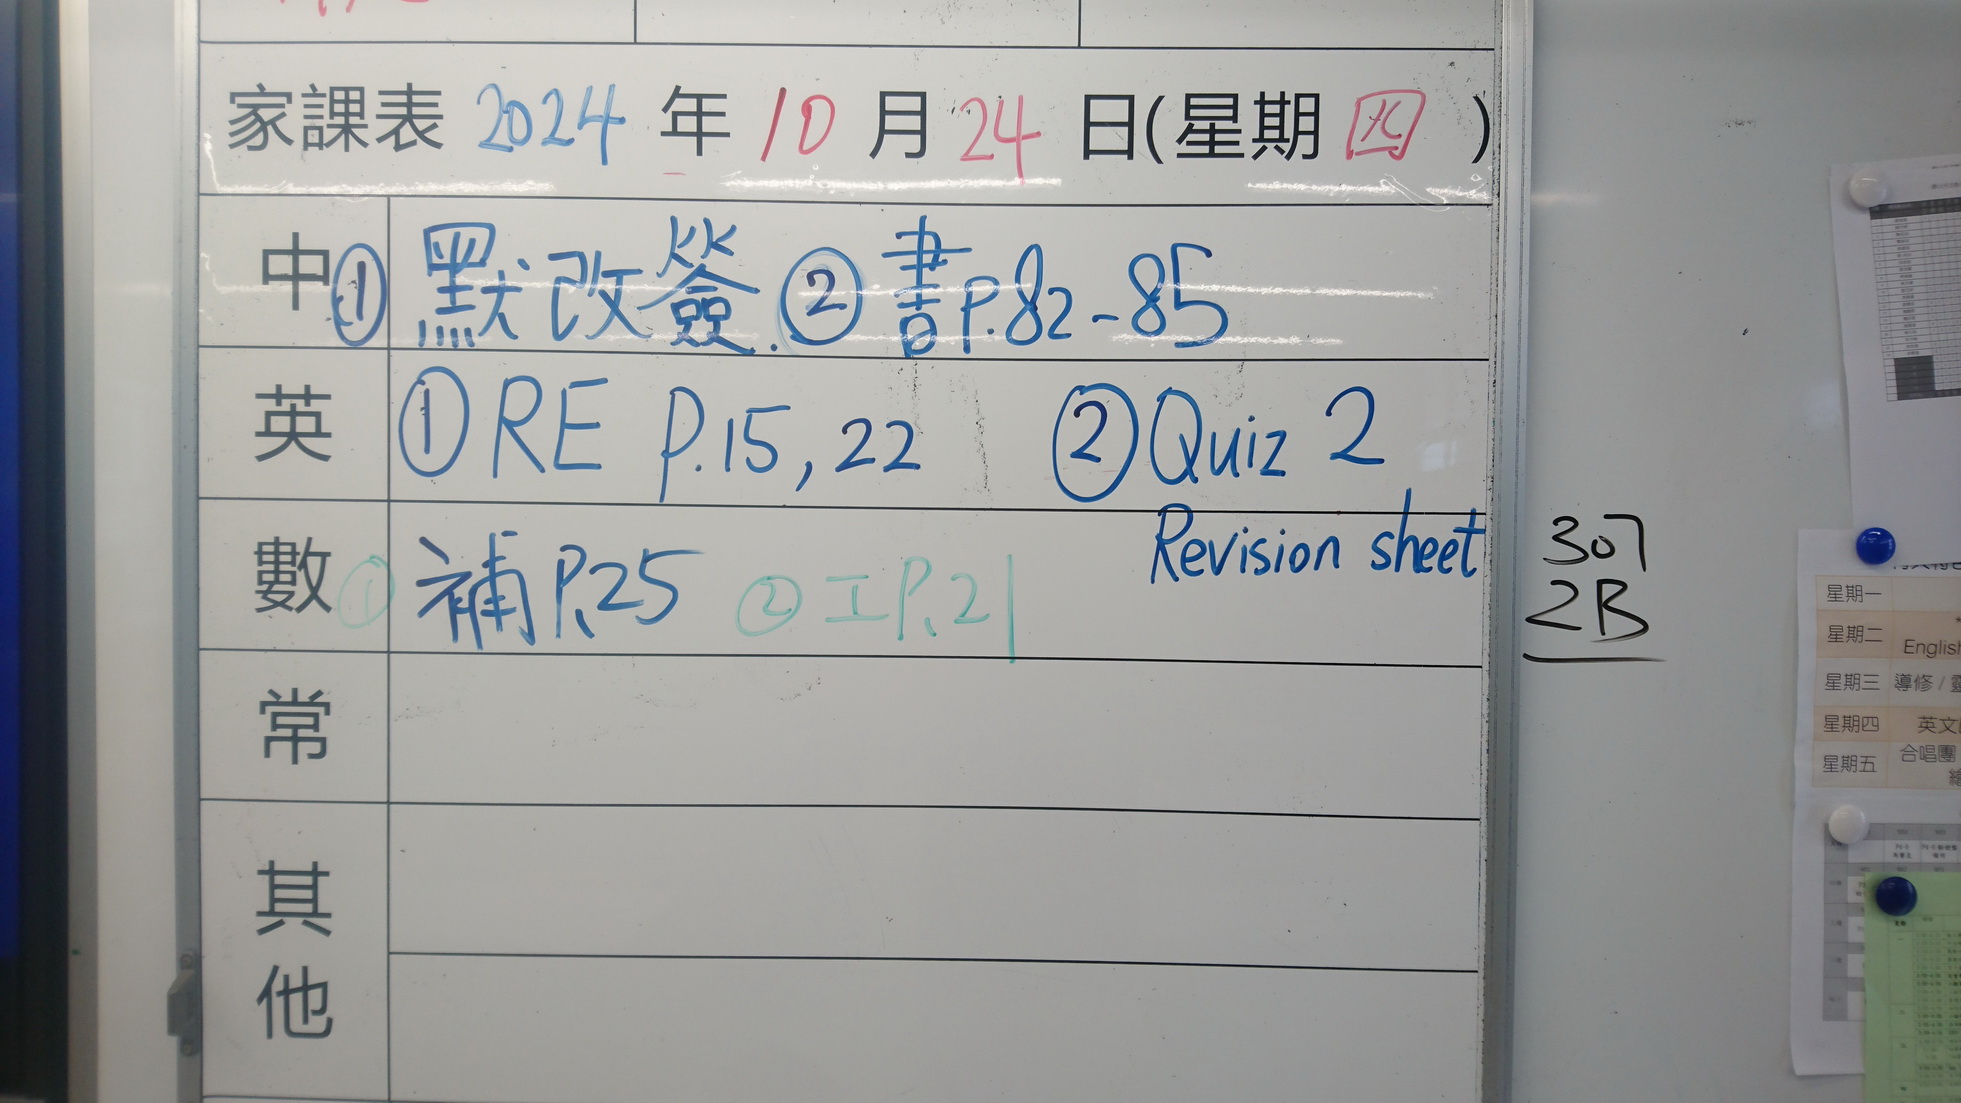 家課表 2024 年 10 月 24 日(星期 四 )
中 ① 默改簽. ② 書 P.82-85
英 ① RE P.15, 22 ② Quiz 2
Revision sheet
數 ① 補 P.25 ② 工 P.21
常
其他
307
2B
星期一
星期二
English
星期三 導修 /
星期四 英文
星期五 合唱團